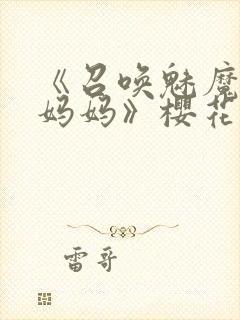 《召唤魅魔
妈妈》樱花
雷哥